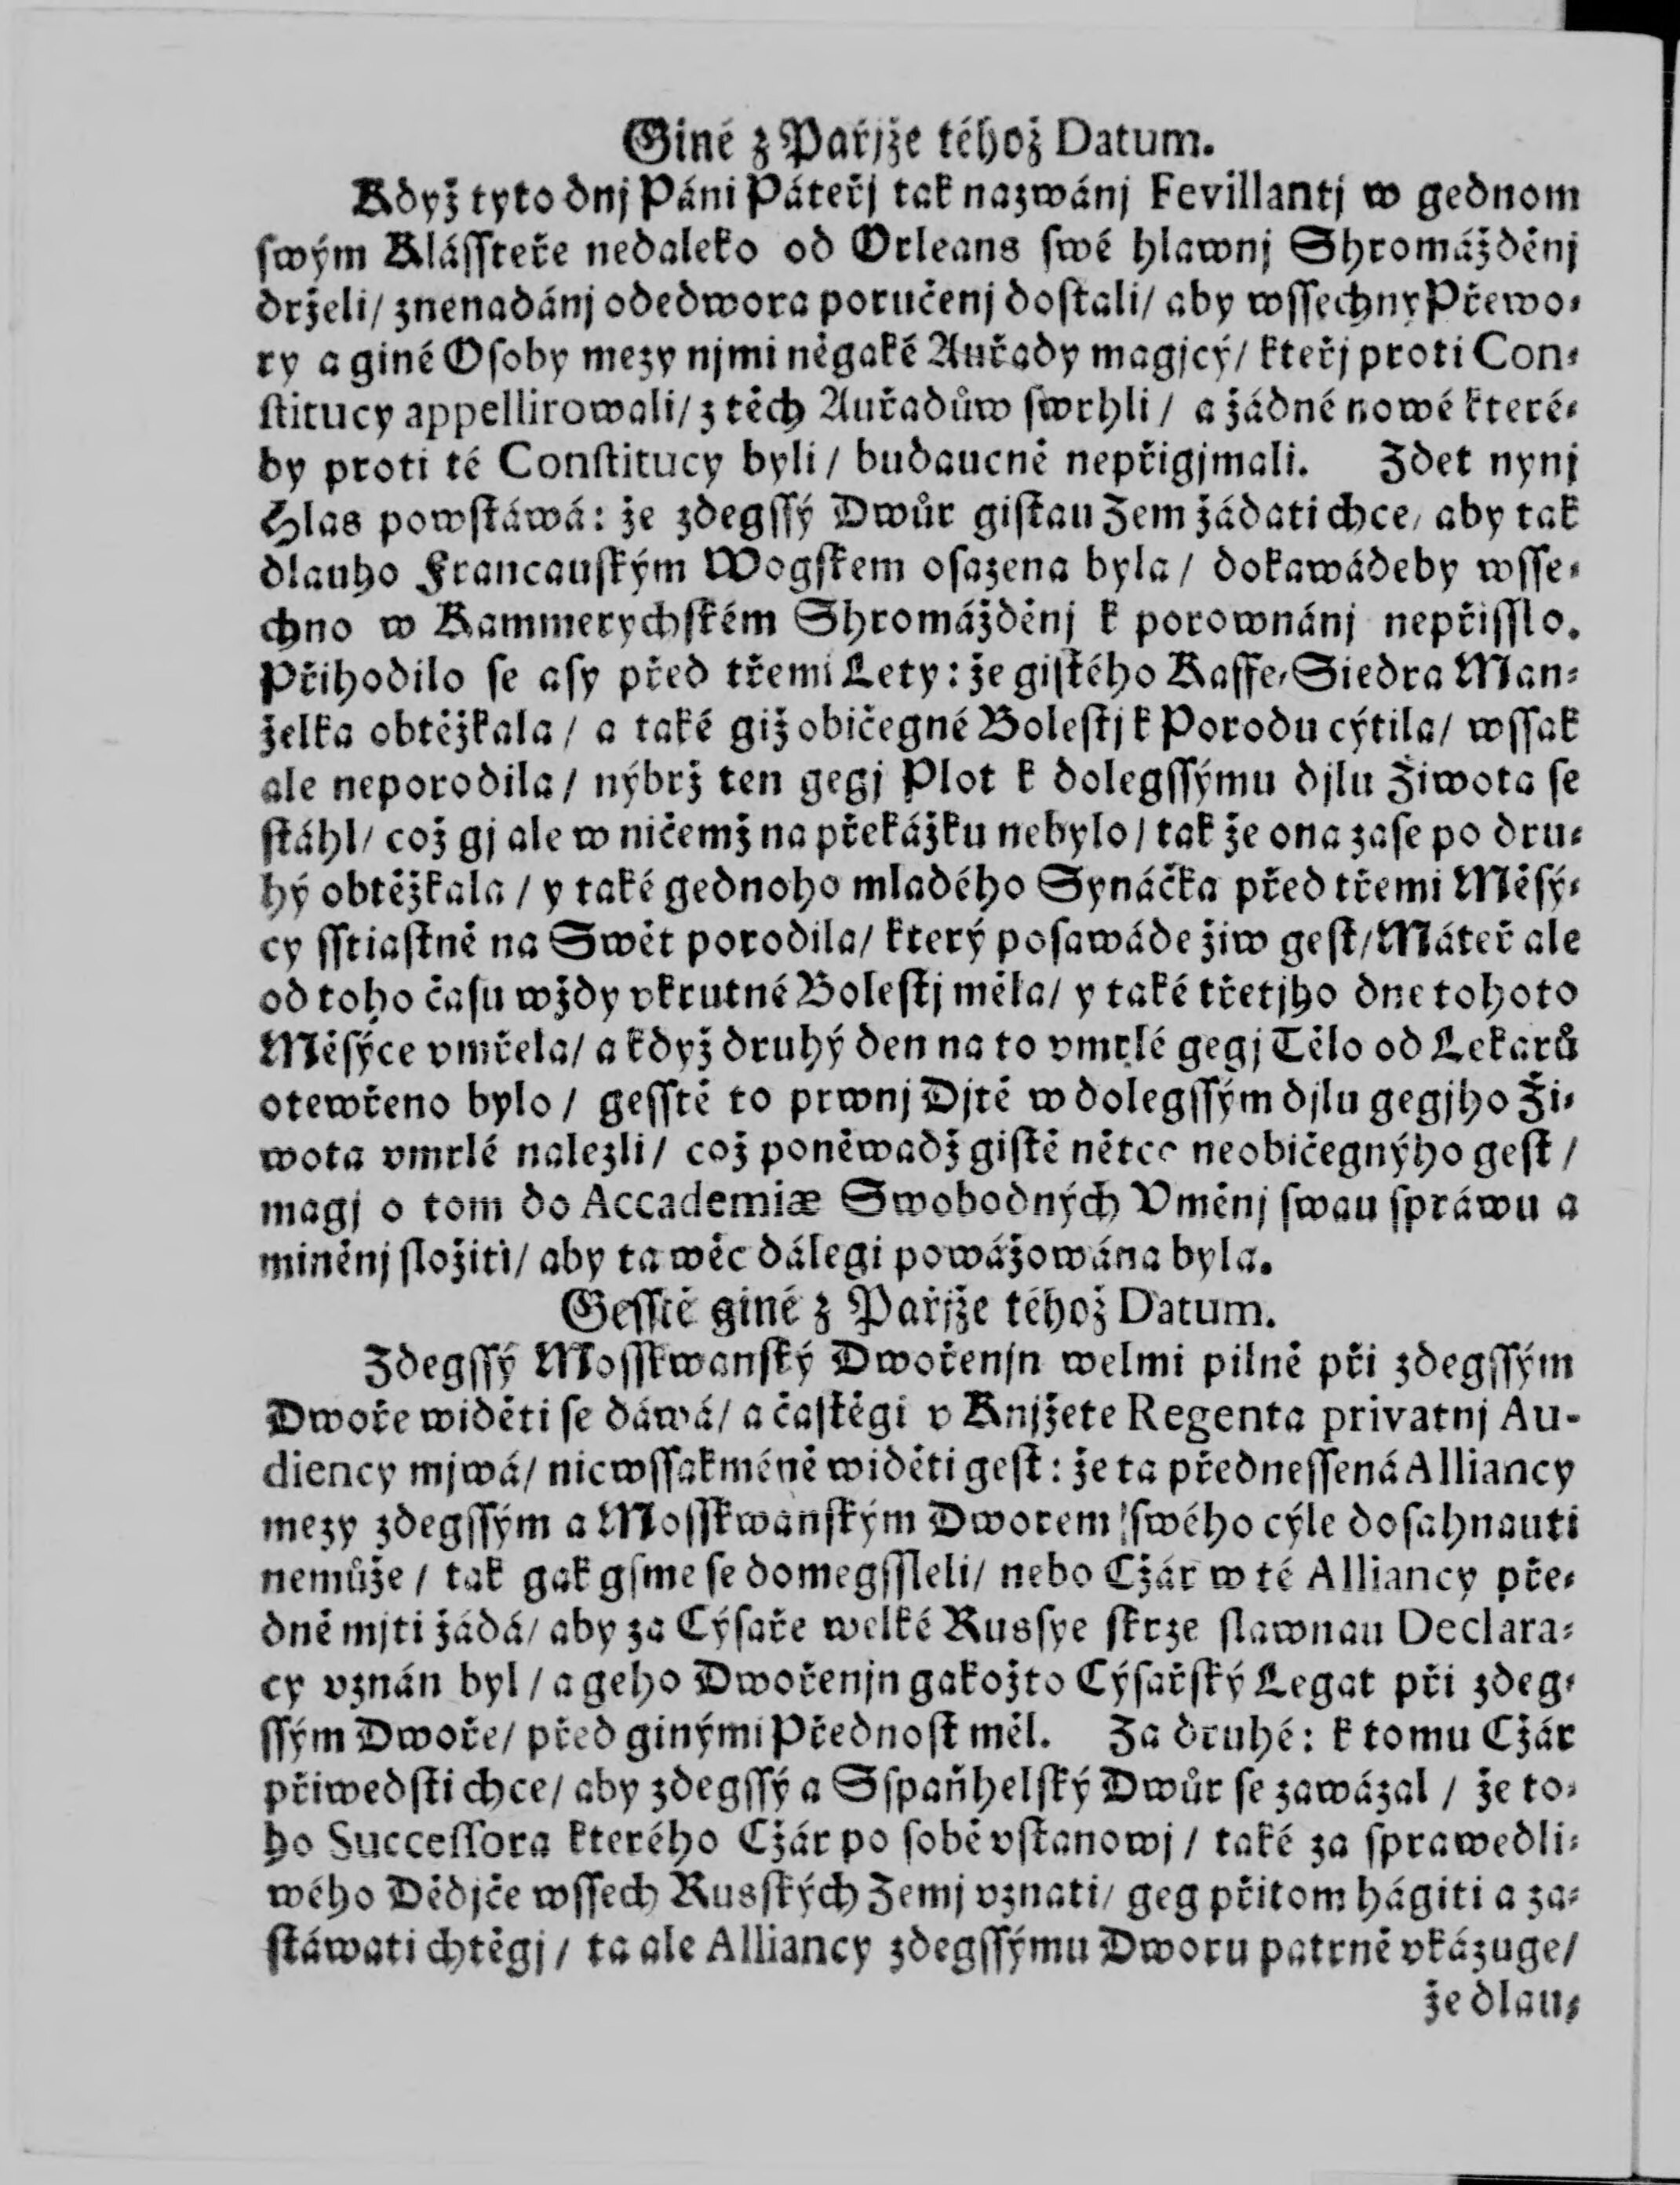 Giné z Pařjže téhož Datum.
Když tyto dnj Páni Páteřj tak nazwánj Fevillantj w gednom
ſwým Kláſſteře nedaleko od Orleans ſwé hlawnj Shromážděnj
drželi/ znenadánj odedwora poručenj doſtali/ aby wſſechny Přewo-
ry a giné Oſoby mezy njmi něgaké Auřady magjcý/ kteřj proti Con-
ſtitucy appellirowali/ z těch Auřadůw ſwrhli/ a žádné nowé které-
by proti té Conſtitucy byli/ budaucně nepřigjmali. Zdet nynj
Hlas powſtáwá: že zdegſſý Dwůr giſtau Zem žádati chce/ aby tak
dlauho Francauſkým Wogſkem oſazena byla/ dokawádeby wſſe-
chno w Kammerychſkém Shromážděnj k porownánj nepřiſſlo.
Přihodilo ſe aſy před třemi Lety: že giſtého Kaffe-Siedra Man-
želka obtěžkala/ a také giž običegné Boleſtj k Porodu cýtila/ wſſak
ale neporodila/ nýbrž ten gegj Plot k dolegſſýmu djlu Žiwota ſe
ſtáhl/ což gj ale w ničemž na překážku nebylo/ tak že ona zaſe po dru-
hý obtěžkala/ y také gednoho mladého Synáčka před třemi Měſý-
cy ſſtiaſtně na Swět porodila/ který poſawáde žiw geſt/ Máteř ale
od toho čaſu wždy vkrutné Boleſtj měla/ y také třetjho dne tohoto
Měſýce vmřela/ a když druhý den na to vmrlé gegj Tělo od Lekarů
otewřeno bylo/ geſſtě to prwnj Djtě w dolegſſým djlu gegjho Ži-
wota vmrlé nalezli/ což poněwadž giſtě nětco neobičegnýho geſt/
magj o tom do Accademiæ Swobodných Vměnj ſwau ſpráwu a
miněnj ſložiti/ aby ta wěc dálegi powážowána byla.
Geſſtě giné z Pařjže téhož Datum.
Zdegſſý Moſſkwanſký Dwořenjn welmi pilně při zdegſſým
Dwoře widěti ſe dáwá/ a čaſtěgi v Knjžete Regenta privatnj Au-
diency mjwá/ nicwſſakméně widěti geſt: že ta předneſſená Alliancy
mezy zdegſſým a Moſſkwanſkým Dworem ſwého cýle doſahnauti
nemůže/ tak gak gſme ſe domegſſleli/ nebo Cžár w té Alliancy pře-
dně mjti žádá/ aby za Cýſaře welké Rusſye ſkrze ſlawnau Declara-
cy vznán byl/ a geho Dwořenjn gakožto Cýſařſký Legat při zdeg-
ſſým Dwoře/ před ginými Přednoſt měl. Za druhé: k tomu Cžár
přiwedſti chce/ aby zdegſſý a Sſpaňhelſký Dwůr ſe zawázal/ že to-
ho Succeſſora kterého Cžár po ſobě vſtanowj/ také za ſprawedli-
wého Dědjče wſſech Rusſkých Zemj vznati/ geg přitom hágiti a za-
ſtáwati chtěgj/ ta ale Alliancy zdegſſýmu Dworu patrně vkázuge/
že dlau-